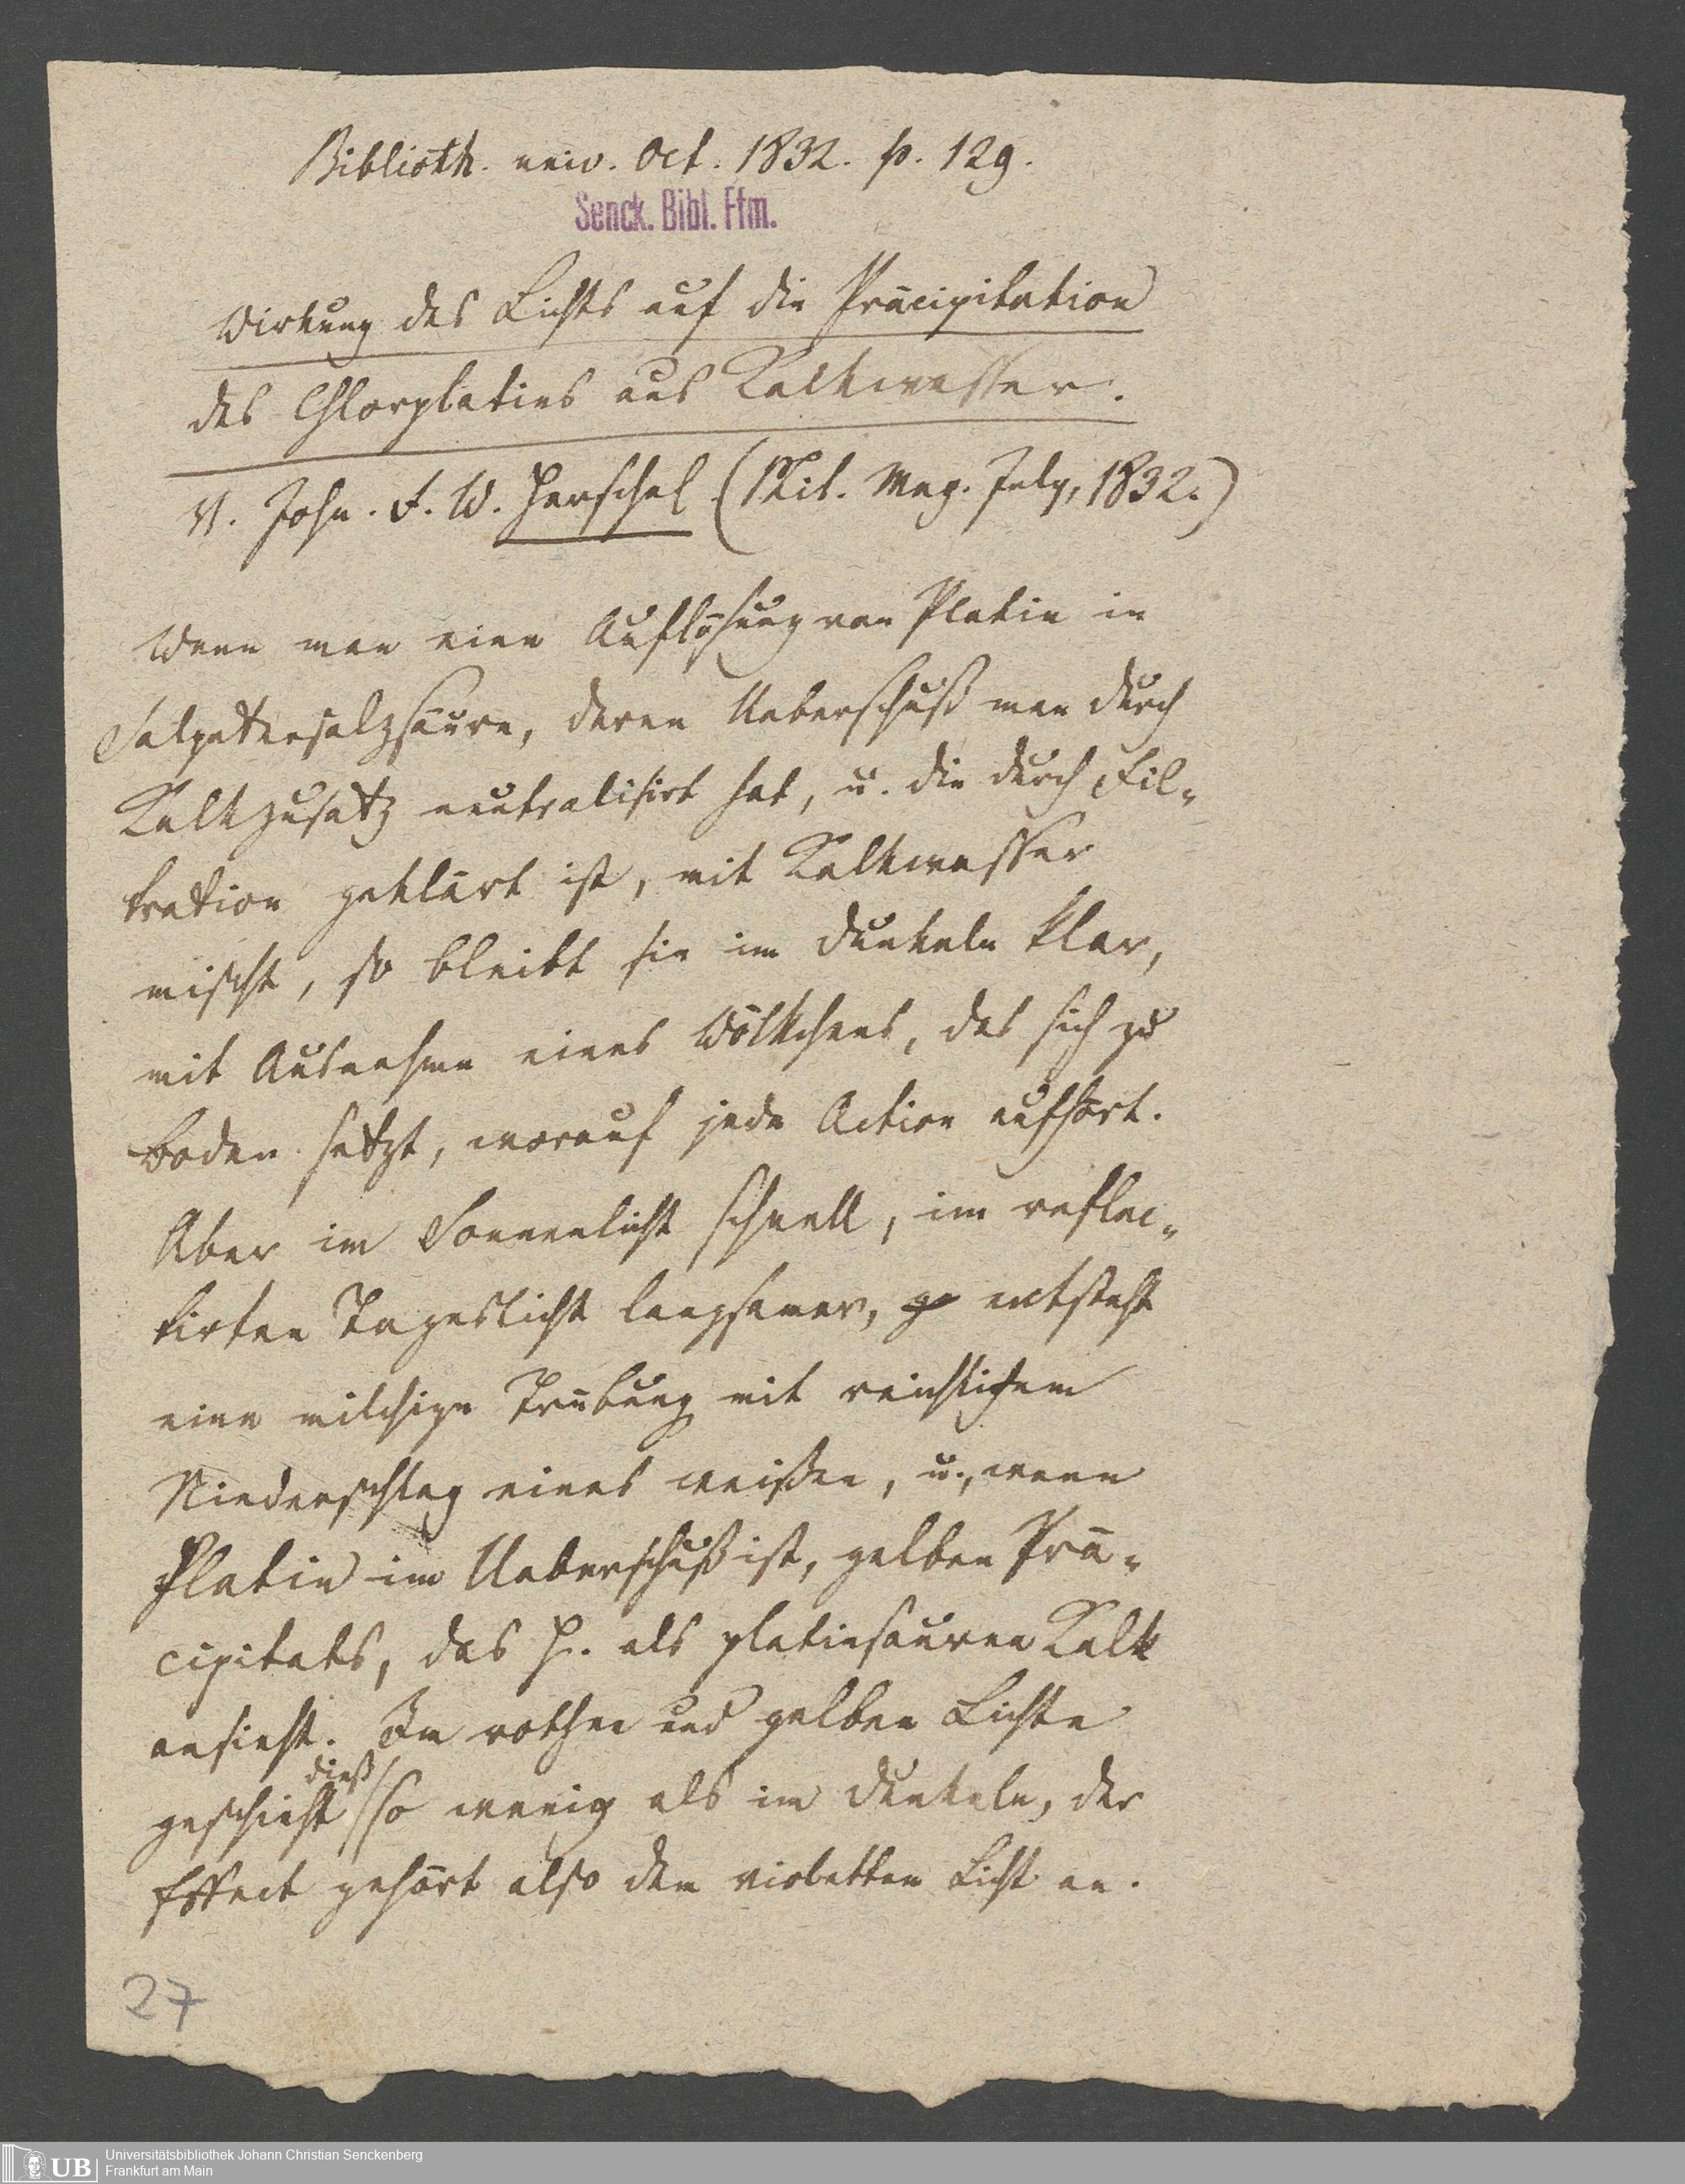 Biblioth. univ. Oct. 1832. p. 129.
Senck. Bibl. Ffm.
Wirkung des Lichts auf die Präcipitation
des Chlorplatins aus Kalkwasser.
v. John. F. W. Herschel (Phil. Mag. July, 1832.)
Wenn man eine Auflösung von Platin in
Salpetersalzsäure, deren Ueberschuß man durch
Kalkzusatz neutralisirt hat, u. die durch Fil-
tration geklärt ist, mit Kalkwasser
mischt, so bleibt sie im Dunkeln klar,
mit Ausnahme eines Wölkchens, das sich zu
Boden setzt, worauf jede Action aufhört.
Aber im Sonnenlicht schnell, im reflec-
tirten Tageslicht langsamer, entsteht
eine milchige Trübung mit reichlichem
Niederschlag eines weißen, u., wenn
Platin im Ueberschuß ist, gelben Prä-
cipitats, das H. als platinsauren Kalk
ansieht. Im rothen und gelben Lichte
geschieht dieß so wenig als im Dunkeln, der
Effect gehört also dem violetten Licht an.
27
UB Universitätsbibliothek Johann Christian Senckenberg
Frankfurt am Main